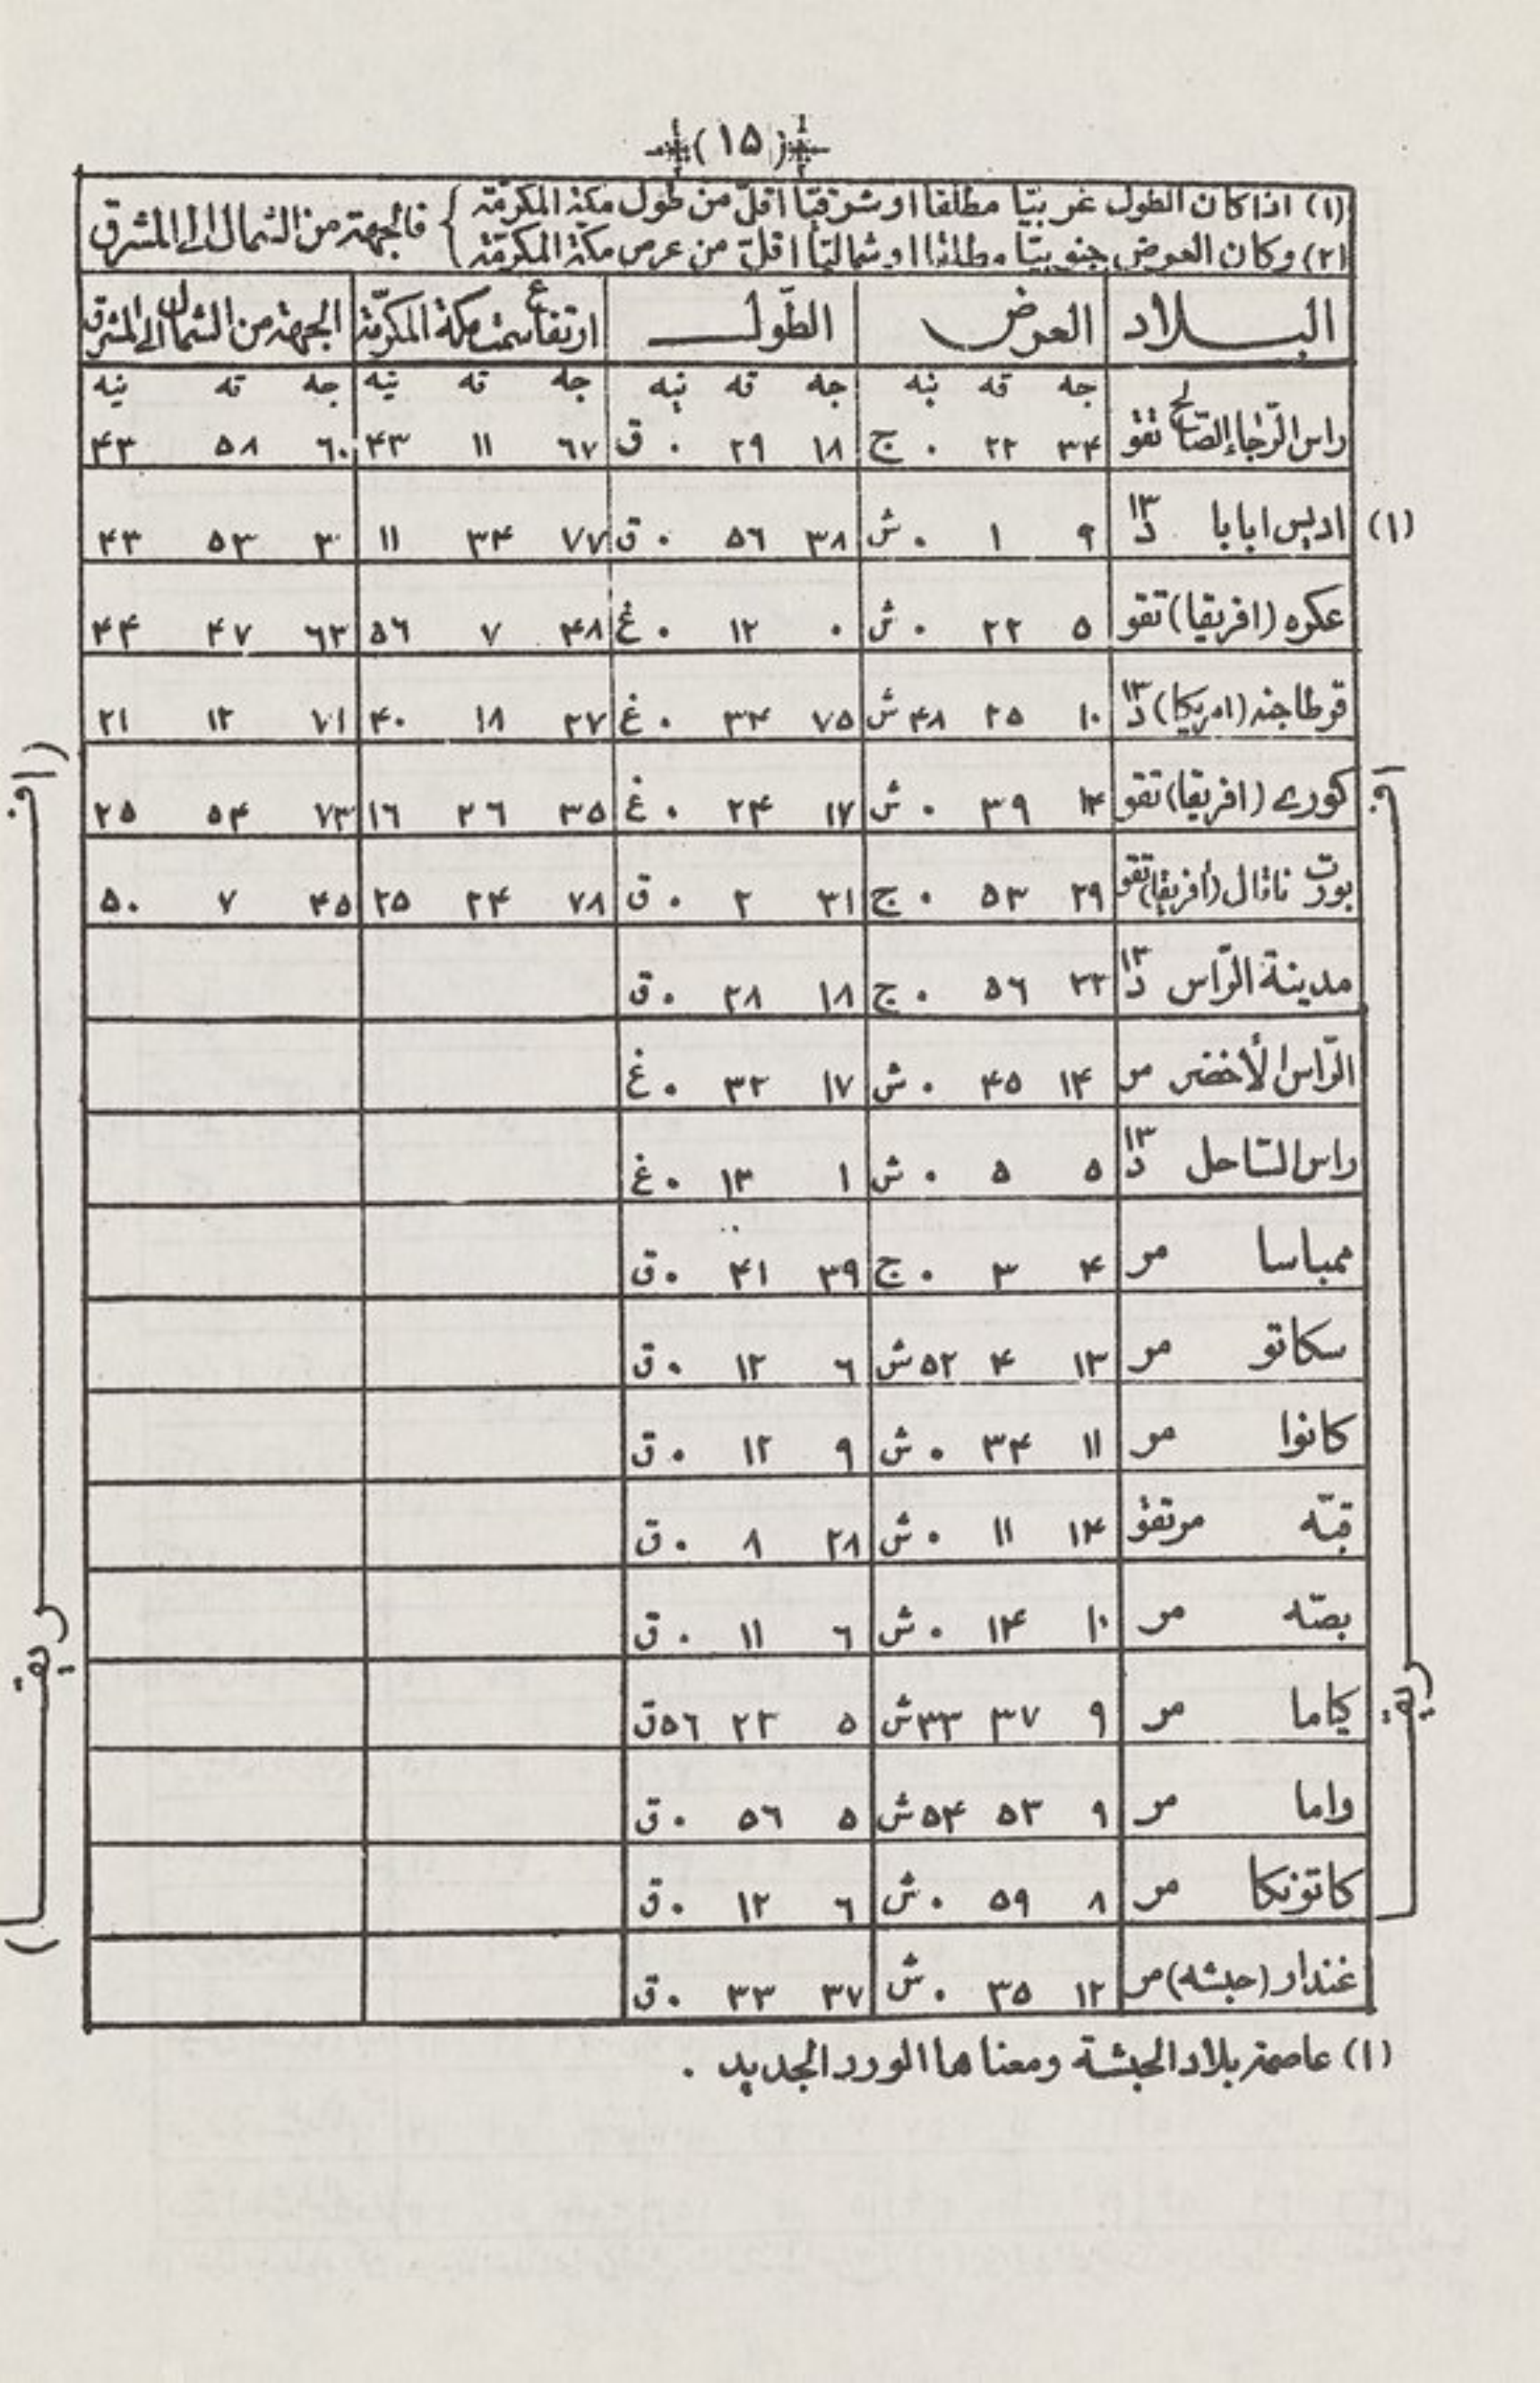 (١٥)
(١) اذا كان الطول غربيّا مطلقا او شرقيّا اقلّ من طول مكة المكرّمة } فالجهة من الشمال الى المشرق
(٢) وكان العرض جنوبيّا مطلقا او شماليّا اقلّ من عرض مكة المكرّمة }
البــلاد العرض الطّول ارتفاع سمت مكة المكرّمة الجهة من الشمال الى المشرق
جه قه نيه جه قه نيه جه قه نيه جه قه نيه
راس الرّجاء الصّالح تقو ٣۴ ٢٢ ٠ ج ١٨ ٢٩ ٠ ق ٦٧ ١١ ۴٣ ٦٠ ٥٨ ۴٣
(١) اديس ابابا د١٣ ٩ ١ ٠ ش ٣٨ ٥٦ ٠ ق ٧٧ ٣۴ ١١ ٣ ٥٣ ۴٣
عكره (افريقا) تقو ٥ ٢٢ ٠ ش ٠ ١٢ ٠ غ ۴٨ ٧ ٥٦ ٦٣ ۴٧ ۴۴
قرطاجنه (امريكا) د١٣ ١٠ ٢٥ ۴٨ ش ٧٥ ٣۴ ٠ غ ٢٧ ١٨ ۴٠ ٧١ ١٢ ٢١
كورے (افريقا) تقو ١۴ ٣٩ ٠ ش ١٧ ٢۴ ٠ غ ٣٥ ٢٦ ١٦ ٧٣ ٥۴ ٢٥
بورت ناتال (افريقا) تقو ٢٩ ٥٣ ٠ ج ٣١ ٢ ٠ ق ٧٨ ٢۴ ٢٥ ۴٥ ٧ ٥٠
مدينة الرّاس د١٣ ٣٣ ٥٦ ٠ ج ١٨ ٢٨ ٠ ق
الرّاس الأخضر مر ١۴ ۴٥ ٠ ش ١٧ ٣٢ ٠ غ
راس السّاحل د١٣ ٥ ٥ ٠ ش ١ ١٣ ٠ غ
ممباسا مر ۴ ٣ ٠ ج ٣٩ ۴١ ٠ ق
سكاتو مر ١٣ ۴ ٥٢ ش ٦ ١٢ ٠ ق
كانوا مر ١١ ٣۴ ٠ ش ٩ ١٢ ٠ ق
قبّه مر تقو ١۴ ١١ ٠ ش ٢٨ ٨ ٠ ق
بصّه مر ١٠ ١۴ ٠ ش ٦ ١١ ٠ ق
كياما مر ٩ ٣٧ ٣٣ ش ٥ ٢٣ ٥٦ ق
واما مر ٩ ٥٣ ٥۴ ش ٥ ٥٦ ٠ ق
كاتونكا مر ٨ ٥٩ ٠ ش ٦ ١٢ ٠ ق
غندار (حبشه) مر ١٢ ٣٥ ٠ ش ٣٧ ٣٣ ٠ ق
افريقا
(افريقا)
(١) عاصمة بلاد الحبشة ومعناها الورد الجديد .